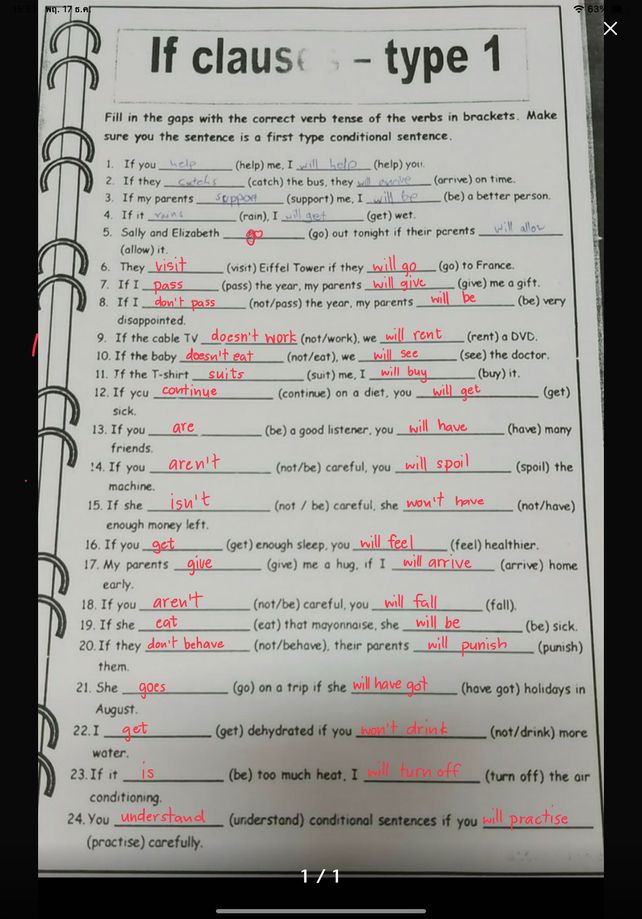 พฤ. 17 ธ.ค.
63%
If clauses - type 1
Fill in the gaps with the correct verb tense of the verbs in brackets. Make
sure you the sentence is a first type conditional sentence.
1. If you help (help) me, I will help (help) you.
2. If they catchs (catch) the bus, they will arrive (arrive) on time.
3. If my parents support (support) me, I will be (be) a better person.
4. If it rains (rain), I will get (get) wet.
5. Sally and Elizabeth go (go) out tonight if their parents will allow
(allow) it.
6. They visit (visit) Eiffel Tower if they will go (go) to France.
7. If I pass (pass) the year, my parents will give (give) me a gift.
8. If I don't pass (not/pass) the year, my parents will be (be) very
disappointed.
9. If the cable TV doesn't work (not/work), we will rent (rent) a DVD.
10. If the baby doesn't eat (not/eat), we will see (see) the doctor.
11. If the T-shirt suits (suit) me, I will buy (buy) it.
12. If you continue (continue) on a diet, you will get (get)
sick.
13. If you are (be) a good listener, you will have (have) many
friends.
14. If you aren't (not/be) careful, you will spoil (spoil) the
machine.
15. If she isn't (not / be) careful, she won't have (not/have)
enough money left.
16. If you get (get) enough sleep, you will feel (feel) healthier.
17. My parents give (give) me a hug, if I will arrive (arrive) home
early.
18. If you aren't (not/be) careful, you will fall (fall).
19. If she eat (eat) that mayonnaise, she will be (be) sick.
20. If they don't behave (not/behave), their parents will punish (punish)
them.
21. She goes (go) on a trip if she will have got (have got) holidays in
August.
22. I get (get) dehydrated if you won't drink (not/drink) more
water.
23. If it is (be) too much heat, I will turn off (turn off) the air
conditioning.
24. You understand (understand) conditional sentences if you will practise
(practise) carefully.
1 / 1